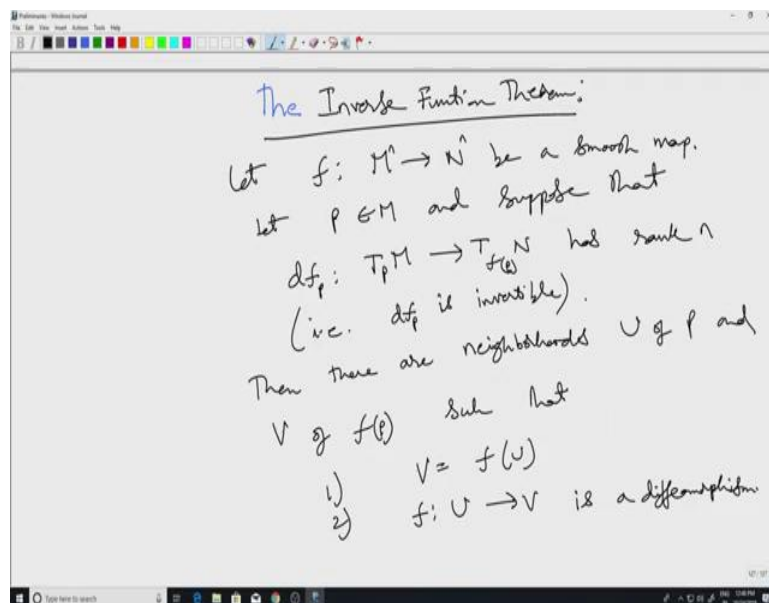 Preliminaries - Windows Journal
File Edit View Insert Actions Tools Help
The Inverse Funtion Theorem:
Let f: Mⁿ → Nⁿ be a smooth map.
Let p ∈ M and suppose that
df_p: T_p M → T_{f(p)} N has rank n
(i.e. df_p is invertible).
Then there are neighborhoods U of p and
V of f(p) such that
1) V = f(U)
2) f: U → V is a diffeomorphism.
Type here to search